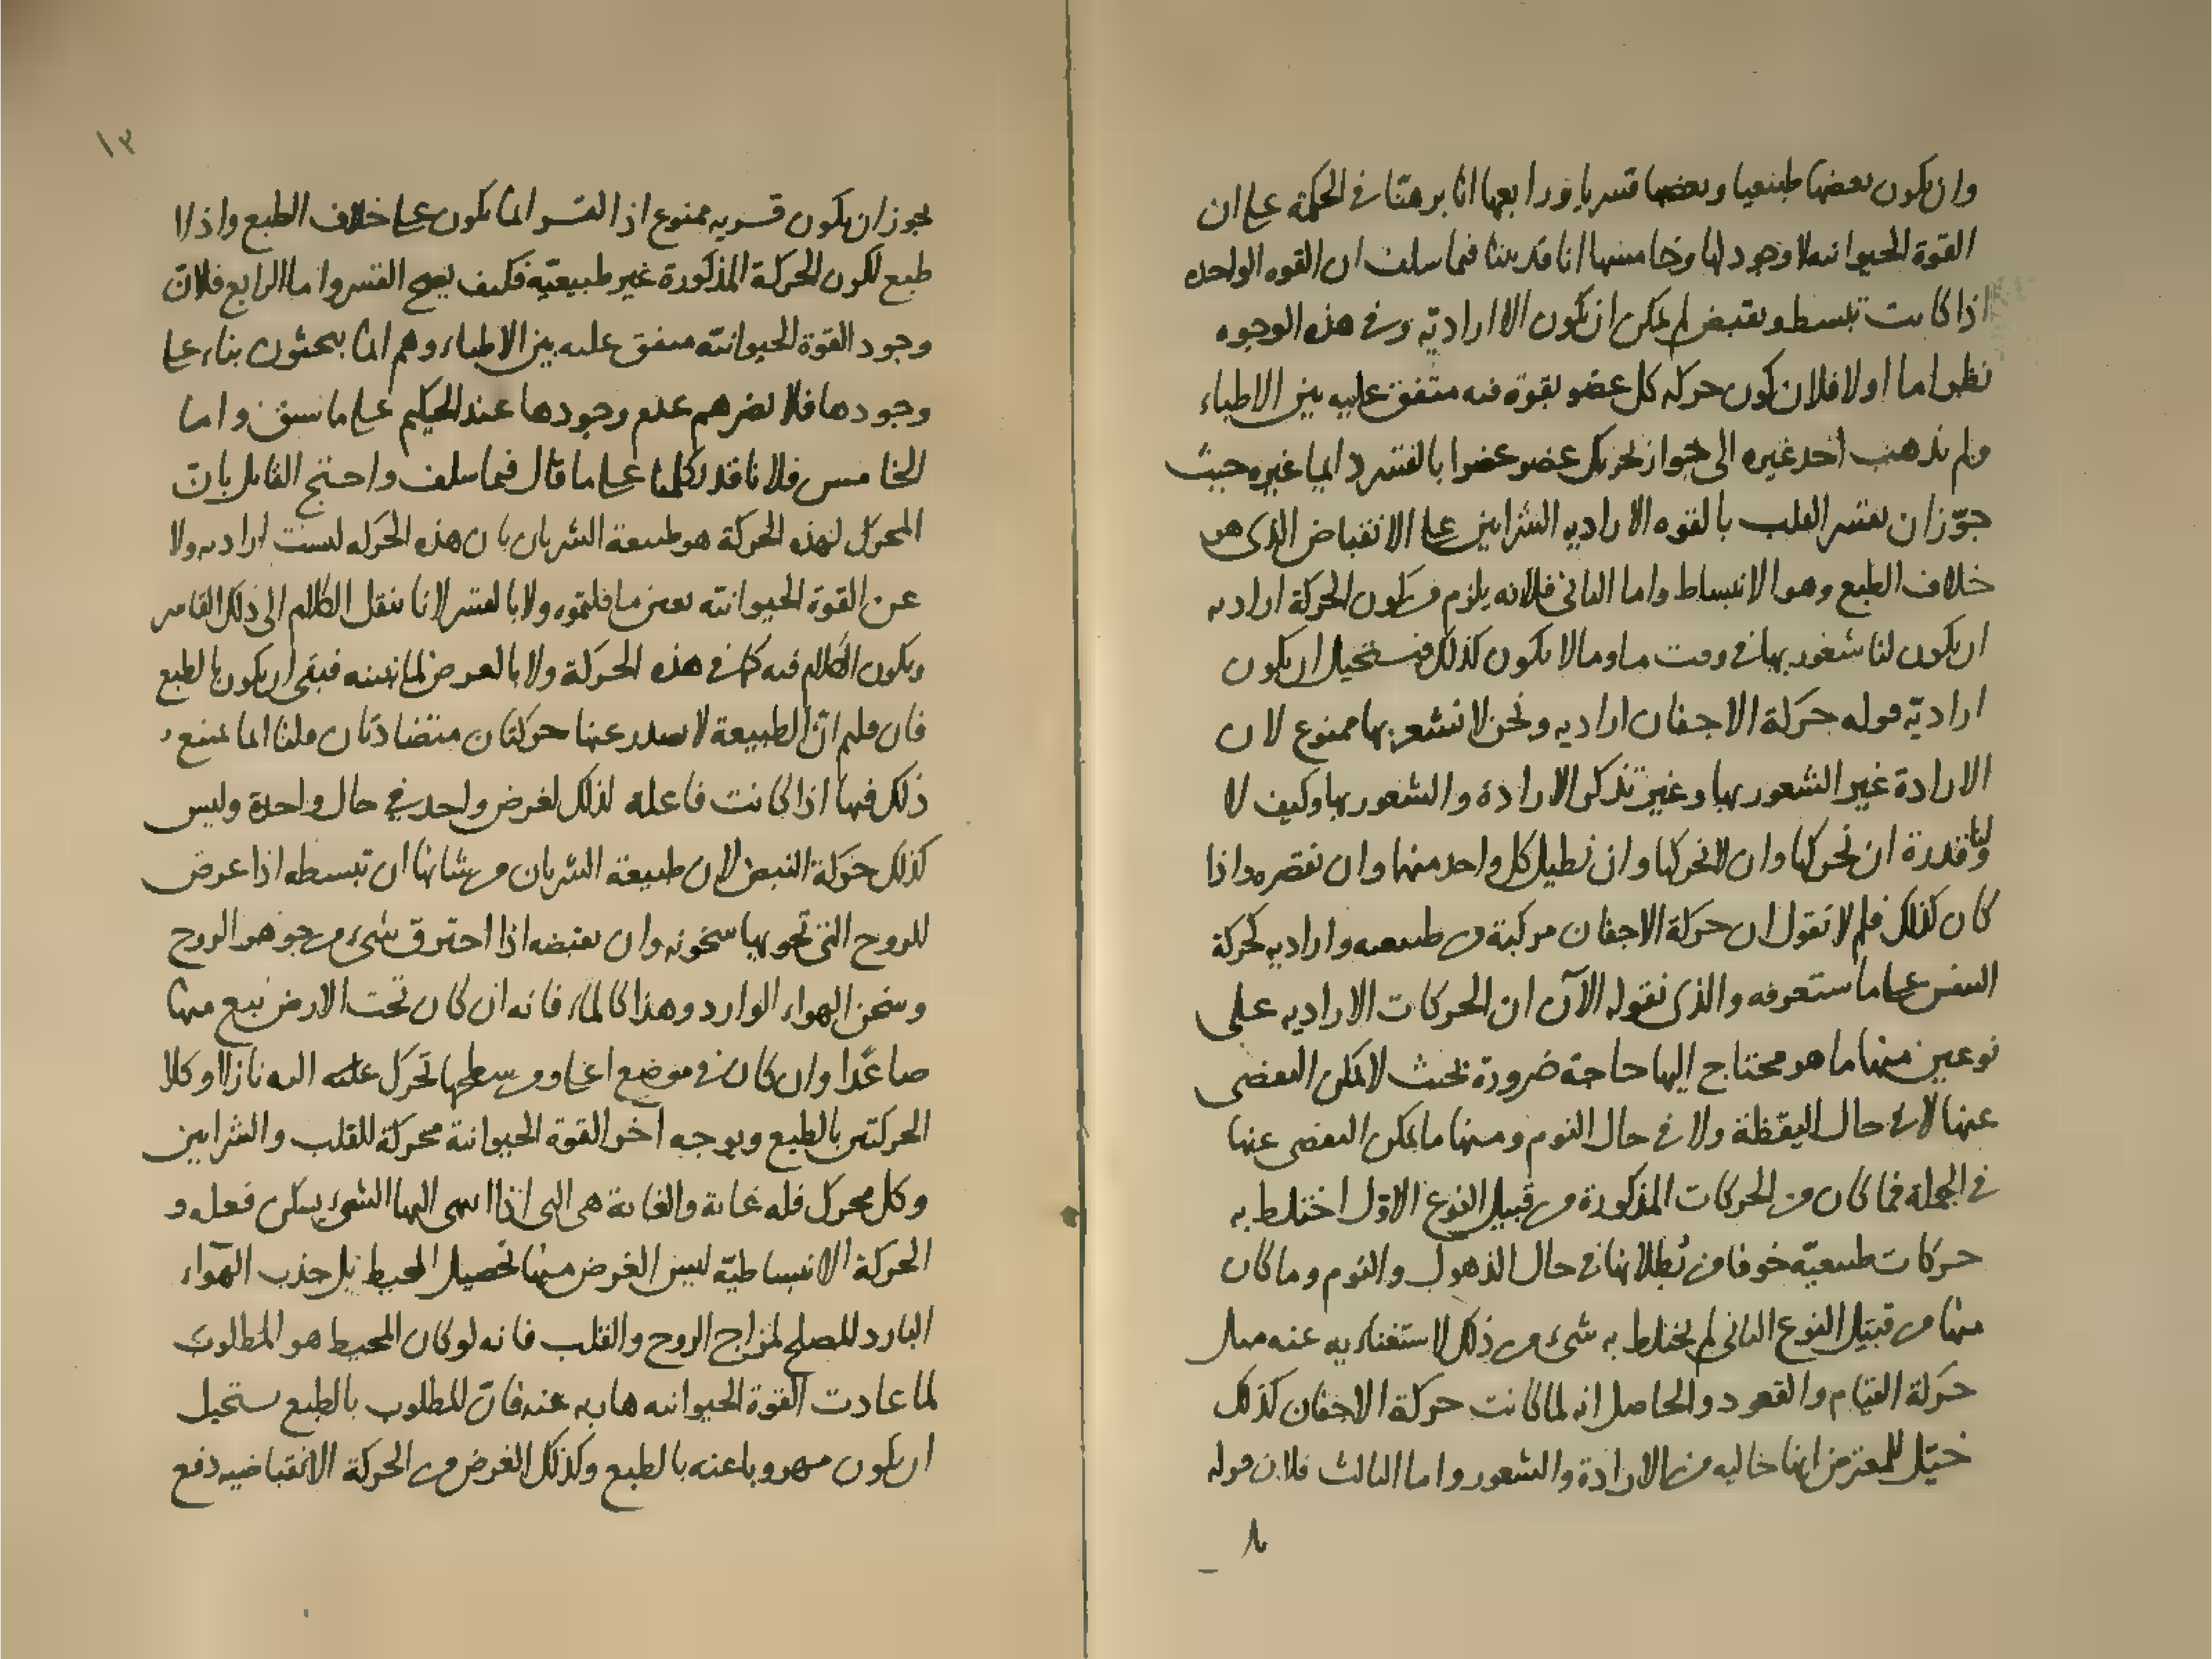 وان يكون بعضها طبيعيا وبعضها قسريا ورابعها انا برهنا في الحكمة على ان
القوة الحيوانيه لا وجود لها وخامسها انا قد بينا فيما سلف ان القوه الواحده
اذا كانت تبسط وتقبض لم يمكن ان تكون الا اراديّة وفي هذه الوجوه
نظر اما اولا فلان كون حركه كل عضو بقوة فيه متفق عليه بين الاطباء
ولم يذهب احد غيره الى جواز تحريك عضو عضوا بالقسر دايما غيره حيث
جوّز ان يقسر القلب بالقوه الاراديه الشرايين على الانقباض الذى هو
خلاف الطبع وهو الانبساط واما الثانى فلانه يلزم من كون الحركة اراديه
ان يكون لنا شعور بها في وقت ما وما لا يكون كذلك فيستحيل ان يكون
اراديّة قوله حركة الاجفان اراديه ونحن لا نشعر بها ممنوع لان
الارادة غير الشعور بها وغير تذكر الارادة والشعور بها وكيف لا
ولنا قدرة ان نحركها وان لا نحركها وان نطيل كل واحد منهما وان نقصره واذا
كان كذلك فلم لا نقول ان حركة الاجفان مركبة من طبيعيه واراديه كحركة
النفس على ما ستعرفه والذى نقوله الآن ان الحركات الاراديه على
نوعين منها ما هو محتاج اليها حاجة ضرورة بحيث لا يمكن التفصى
عنها لا في حال اليقظة ولا في حال النوم ومنها ما يمكن التفصى عنها
في الجملة فما كان من الحركات المذكورة من قبيل النوع الاوّل اختلط به
حركات طبيعيّه خوفا من بُطلانها في حال الذهول والنوم وما كان
منها من قبيل النوع الثانى لم يختلط به شىء من ذلك لاستغنائه عنه مثل
حركة القيام والقعود والحاصل انه لما كانت حركة الاجفان كذلك
خيّل للمعترض انها خاليه من الارادة والشعور واما الثالث فلان قوله
١٣
يجوز ان يكون قسريه ممنوع اذ القسر انما يكون على خلاف الطبع واذ لا
طبع لكون الحركة المذكورة غير طبيعيّه فكيف يصح القسر واما الرابع فلانّ
وجود القوة الحيوانيّه متفق عليه بين الاطباء وهم انما يبحثون بناء على
وجودها فلا يضرهم عدم وجودها عند الحكيم على ما سبق واما
الخامس فلانا قد تكلمنا على ما قال فيما سلف واحتج القايل بانّ
المحرك لهذه الحركة هو طبيعة الشريان بان هذه الحركه ليست اراديه ولا
عن القوة الحيوانيّه بعين ما قلتموه ولا بالقسر لانا ننقل الكلام الى ذلك القاسر
ويكون الكلام فيه كما في هذه الحركة ولا بالعرض لما نبينه فبقى ان يكون بالطبع
فان قلتم انّ الطبيعة لا يصدر عنها حركتان متضادّتان قلنا انما يمتنع
ذلك فيها اذا كانت فاعله لذلك لغرض واحد في حال واحدة وليس
كذلك حركة النبض لان طبيعة الشريان من شانها ان تبسطه اذا عرض
للروح التى تحويها سخونه وان تقبضه اذا احترق شىء من جوهر الروح
وسخن الهواء الوارد وهذا كالماء فانه ان كان تحت الارض نبع منها
صاعدًا وان كان في موضع اعلى من سطحها تحرك اليه نازلا وكلا
الحركتين بالطبع وبوجه آخر القوة الحيوانية محركة للقلب والشرايين
وكل محرك فله غاية والغاية هى التى اذا انتهى اليها الشىء يسكن فعله و
الحركة الانبساطيّه ليس الغرض منها تحصيل المحيط بل جذب الهواء
البارد المصلح لمزاج الروح والقلب فانه لو كان المحيط هو المطلوب
لما عادت القوة الحيوانيه هاربه عنه فانّ المطلوب بالطبع يستحيل
ان يكون مهروبا عنه بالطبع وكذلك الغرض من الحركة الانقباضيه دفع